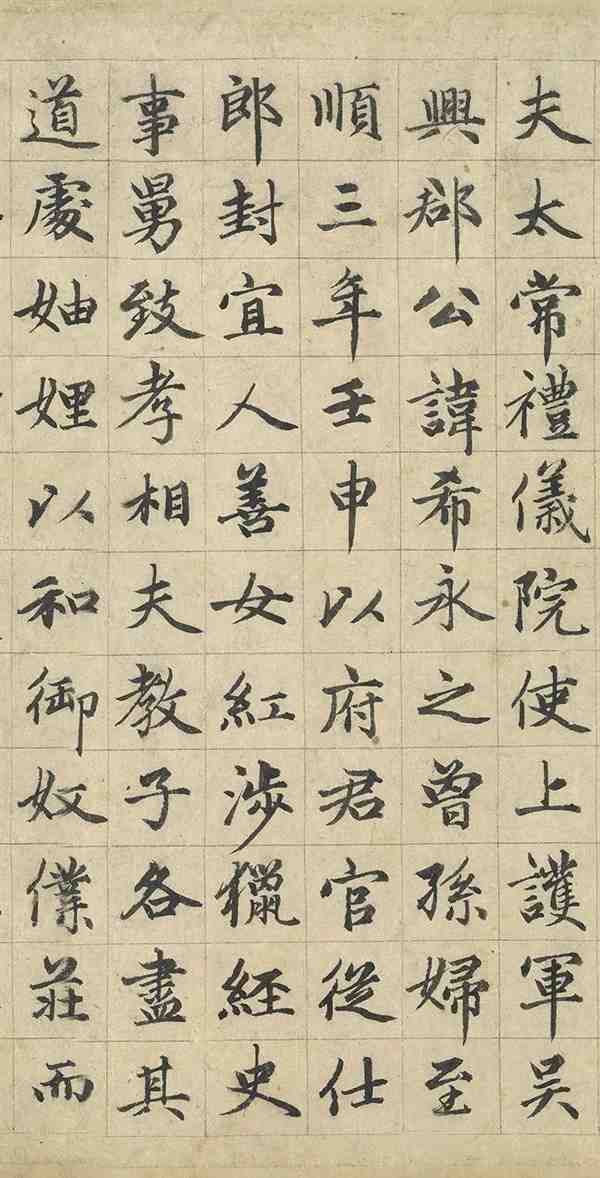 夫太常禮儀院使上護軍吴
興郡公諱希永之曾孫婦至
順三年壬申以府君官從仕
郎封宜人善女紅涉獵經史
事舅致孝相夫教子各盡其
道處妯娌以和御奴僕莊而